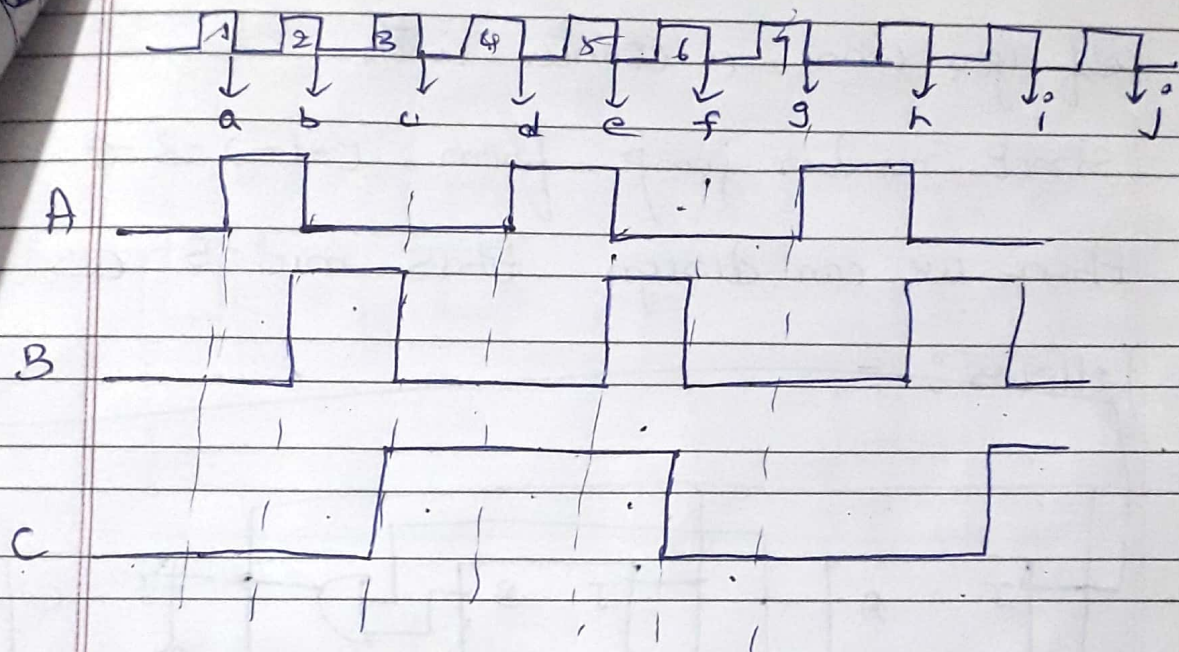 1 2 3 4 5 6 7
a b c d e f g h i j
A
B
C